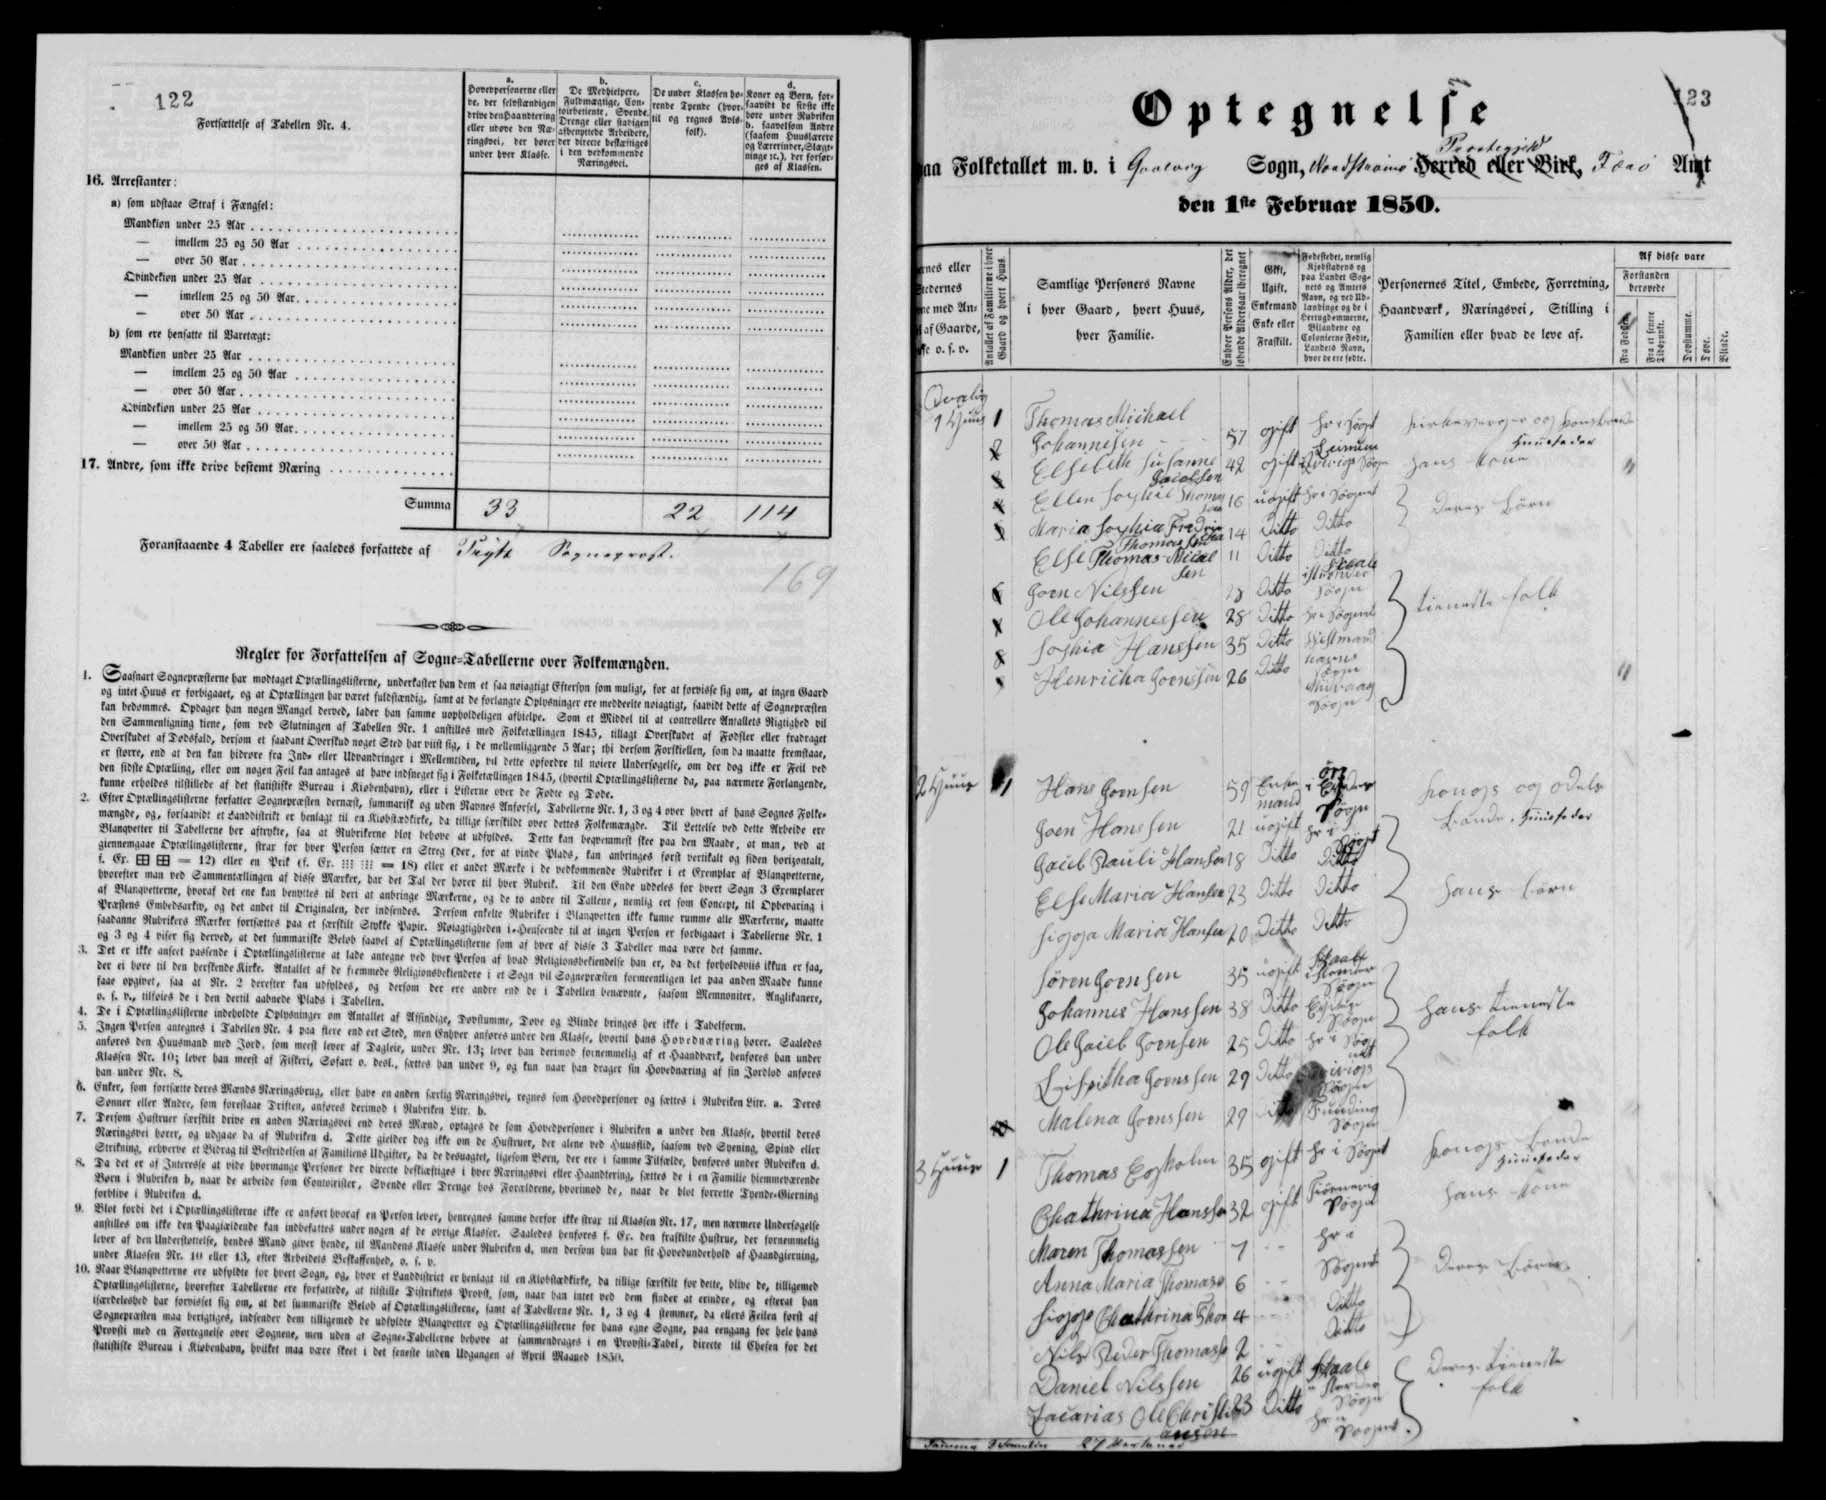 122
Fortsættelse af Tabellen Nr. 4.
a.
Hovedpersonerne eller
de, der selvstændigen
drive den Haandtering
eller udøve den Næ-
ringsvei, der hører
under hver Klasse.
b.
De Medhjelpere,
Fuldmægtige, Con-
toirbetiente, Svende,
Drenge eller stadigen
afbenyttede Arbeidere,
der directe beskæftiges
i den vedkommende
Næringsvei.
c.
De under Klassen hø-
rende Tyende (hvor-
til og regnes Avls-
folk).
d.
Koner og Børn, for-
saavidt de sidste ikke
høre under Rubriken
b. saavelsom Andre
(saasom Huuslærere
og Lærerinder, Slægt-
ninge ꝛc.), der forsør-
ges af Klassen.
16. Arrestanter:
a) som udstaae Straf i Fængsel:
Mandkiøn under 25 Aar
— imellem 25 og 50 Aar
— over 50 Aar
Qvindekiøn under 25 Aar
— imellem 25 og 50 Aar
— over 50 Aar
b) som ere hensatte til Varetægt:
Mandkiøn under 25 Aar
— imellem 25 og 50 Aar
— over 50 Aar
Qvindekiøn under 25 Aar
— imellem 25 og 50 Aar
— over 50 Aar
17. Andre, som ikke drive bestemt Næring
Summa 33 22 114
Foranstaaende 4 Tabeller ere saaledes forfattede af
169
Regler for Forfattelsen af Sogne-Tabellerne over Folkemængden.
1. Saasnart Sognepræsterne har modtaget Optællingslisterne, underkaster han dem et saa nøiagtigt Eftersyn som muligt, for at forvisse sig om, at ingen Gaard
og intet Huus er forbigaaet, og at Optællingen har været fuldstændig, samt at de forlangte Oplysninger ere meddeelte nøiagtigt, saavidt dette af Sognepræsten
kan bedømmes. Opdager han nogen Mangel derved, lader han samme uopholdeligen afhielpe. Som et Middel til at controllere Antallets Rigtighed vil
den Sammenligning tiene, som ved Slutningen af Tabellen Nr. 1 anstilles med Folketællingen 1845, tillagt Overskudet af Fødsler eller fradraget
Overskudet af Dødsfald, dersom et saadant Overskud noget Sted har viist sig, i de mellemliggende 5 Aar; thi dersom Forskiellen, som da maatte fremstaae,
er større, end at den kan hidrøre fra Ind- eller Udvandringer i Mellemtiden, vil dette opfordre til nøiere Undersøgelse, om der dog ikke er Feil ved
den sidste Optælling, eller om nogen Feil kan antages at have indsneget sig i Folketællingen 1845, (hvortil Optællingslisterne da, paa nærmere Forlangende,
kunne erholdes tilstillede af det statistiske Bureau i Kiøbenhavn), eller i Listerne over de Fødte og Døde.
2. Efter Optællingslisterne forfatter Sognepræsten dernæst, summarisk og uden Navnes Anførsel, Tabellerne Nr. 1, 3 og 4 over hvert af hans Sognes Folke-
mængde, og, forsaavidt et Landdistrikt er henlagt til en Kiøbstædkirke, da tillige særskildt over dettes Folkemængde. Til Lettelse ved dette Arbeide ere
Blanqvetter til Tabellerne her aftrykte, saa at Rubrikerne blot behøve at udfyldes. Dette kan beqvemmest skee paa den Maade, at man, ved at
giennemgaae Optællingslisterne, strax for hver Person sætter en Streg (der, for at vinde Plads, kan anbringes først vertikalt og siden horizontalt,
f. Ex. ⊞ ⊞ = 12) eller en Prik (f. Ex. ⁝⁝⁝ ⁝⁝⁝ = 18) eller et andet Mærke i de vedkommende Rubriker i et Exemplar af Blanqvetterne,
hvorefter man ved Sammentællingen af disse Mærker, har det Tal der hører til hver Rubrik. Til den Ende uddeles for hvert Sogn 3 Exemplarer
af Blanqvetterne, hvoraf det ene kan benyttes til deri at anbringe Mærkerne, og de to andre til Tallene, nemlig eet som Concept, til Opbevaring i
Præstens Embedsarkiv, og det andet til Originalen, der indsendes. Dersom enkelte Rubriker i Blanqvetten ikke kunne rumme alle Mærkerne, maatte
saadanne Rubrikers Mærker fortsættes paa et særskilt Stykke Papir. Nøiagtigheden i Henseende til at ingen Person er forbigaaet i Tabellerne Nr. 1
og 3 og 4 viser sig derved, at det summariske Beløb saavel af Optællingslisterne som af hver af disse 3 Tabeller maa være det samme.
3. Det er ikke anseet passende i Optællingslisterne at lade antegne ved hver Person af hvad Religionsbekiendelse han er, da det forholdsviis ikkun er faa,
der ei høre til den herskende Kirke. Antallet af de fremmede Religionsbekiendere i et Sogn vil Sognepræsten formeentligen let paa anden Maade kunne
faae opgivet, saa at Nr. 2 derefter kan udfyldes, og dersom der ere andre end de i Tabellen benævnte, saasom Memnoniter, Anglikanere,
o. s. v., tilføies de i den dertil aabnede Plads i Tabellen.
4. De i Optællingslisterne indeholdte Oplysninger om Antallet af Afsindige, Døvstumme, Døve og Blinde bringes her ikke i Tabelform.
5. Ingen Person antegnes i Tabellen Nr. 4 paa flere end eet Sted, men Enhver anføres under den Klasse, hvortil hans Hovednæring hører. Saaledes
anføres den Huusmand med Jord, som meest lever af Dagleie, under Nr. 13; lever han derimod fornemmelig af et Haandværk, henføres han under
Klassen Nr. 10; lever han meest af Fiskeri, Søfart o. desl., sættes han under 9, og kun naar han drager sin Hovednæring af sin Jordlod anføres
han under Nr. 8.
6. Enker, som fortsætte deres Mænds Næringsbrug, eller have en anden særlig Næringsvei, regnes som Hovedpersoner og sættes i Rubriken Litr. a. Deres
Sønner eller Andre, som forestaae Driften, anføres derimod i Rubriken Litr. b.
7. Dersom Hustruer særskilt drive en anden Næringsvei end deres Mænd, optages de som Hovedpersoner i Rubriken a under den Klasse, hvortil deres
Næringsvei hører, og udgaae da af Rubriken d. Dette gielder dog ikke om de Hustruer, der alene ved Huusflid, saasom ved Syening, Spind eller
Strikning, erhverve et Bidrag til Bestridelsen af Familiens Udgifter, da de desuagtet, ligesom Børn, der ere i samme Tilfælde, henføres under Rubriken d.
8. Da det er af Interesse at vide hvormange Personer der directe beskiæftiges i hver Næringsvei eller Haandtering, sættes de i en Familie hiemmeværende
Børn i Rubriken b, naar de arbeide som Contoirister, Svende eller Drenge hos Forældrene, hvorimod de, naar de blot forrette Tyende-Gierning
forblive i Rubriken d.
9. Blot fordi det i Optællingslisterne ikke er anført hvoraf en Person lever, henregnes samme derfor ikke strax til Klassen Nr. 17, men nærmere Undersøgelse
anstilles om ikke den Paagiældende kan indbefattes under nogen af de øvrige Klasser. Saaledes henføres f. Ex. den fraskilte Hustrue, der fornemmelig
lever af den Understøttelse, hendes Mand giver hende, til Mandens Klasse under Rubriken d, men dersom hun har sit Hovedunderhold af Haandgierning,
under Klassen Nr. 10 eller 13, efter Arbeidets Beskaffenhed, o. s. v.
10. Naar Blanqvetterne ere udfyldte for hvert Sogn, og, hvor et Landdistrict er henlagt til en Kiøbstædkirke, da tillige særskilt for dette, blive de, tilligemed
Optællingslisterne, hvorefter Tabellerne ere forfattede, at tilstille Distriktets Provst, som, naar han intet ved dem finder at erindre, og efterat han
især deleshed har forvisset sig om, at det summariske Beløb af Optællingslisterne, samt af Tabellerne Nr. 1, 3 og 4 stemmer, da ellers Feilen først af
Sognepræsten maa berigtiges, indsender dem tilligemed de udfyldte Blanqvetter og Optællingslisterne for hans egne Sogne, paa eengang for hele hans
Provsti med en Fortegnelse over Sognene, men uden at Sogne-Tabellerne behøve at sammendrages i en Provsti-Tabel, directe til Chefen for det
statistiske Bureau i Kiøbenhavn, hvilket maa være skeet i det seneste inden Udgangen af April Maaned 1850.
123
Optegnelse
paa Folketallet m. v. i Sogn, Nordstrømø Herred eller Birk, Færø Amt
Præstegjeld
den 1ste Februar 1850.
ernes eller
Stedernes
ne med An-
l af Gaarde,
o. s. v.
Antallet af Familierne i hver Gaard og hvert Huus.
Samtlige Personers Navne
i hver Gaard, hvert Huus,
hver Familie.
Enhver Persons Alder, det løbende Aldersaar iberegnet
Gift,
Ugift,
Enkemand
Enke eller
Fraskilt.
Fødestedet, nemlig
Kjøbstadens og
paa Landet Sog-
nets og Amtets
Navn, og ved Ud-
lændinge og de i
Hertugdømmerne,
Bilandene og
Colonierne Fødte,
Landets Navn,
hvor de ere fødte.
Personernes Titel, Embede, Forretning,
Haandværk, Næringsvei, Stilling i
Familien eller hvad de leve af.
Af disse vare
Forstanden
berøvede
Fra Fødselen.
Fra et senere Tidspunkt.
Døvstumme.
Døve.
Blinde.
1 Huus 1 Thomas Michael
Johannesen 57 gift her i Sogn
Huusfader
Elsebeth Susanne 42 gift hans Kone
Jacobsen
Ellen Sophie Thomas 16 ugift her i Sognet Deres Børn
Maria Sophia Fredri 14 Ditto Ditto
Else Thomas Mical 11 Ditto Ditto
sen
Joen Nilssen Ditto Sogn
Ole Johannessen 28 Ditto her i Sognet tieneste folk
Sophia Hanssen 35 Ditto
Henricha Joenssen 26 Ditto
Sogn
2 Huus 1 Hans Joensen 59 Enke
mand Sogn
Joen Hanssen 21 ugift her i
Sognet
Bonde, Huusfader
Jacob Pauli Hansen 18 Ditto Ditto
Else Maria Hansen 23 Ditto Ditto hans Børn
Maria Hansen 20 Ditto Ditto
Søren Joensen 35 ugift Sogn
Johannes Hanssen 38 Ditto Sogn hans tieneste
folk
Ole Jacob Joensen 25 Ditto her i Sog
net
Joenssen 29 Ditto Sogn
Malena Joenssen 29 Ditto Funding
Sogn
3 Huus 1 Thomas 35 gift her i Sognet Bonde
Huusfader
Chathrina Hanssen 32 gift Sogn hans Kone
Maren Thomassen 7 her i
Sognet
Anna Maria Thomas 6 Deres Børn
Chathrina Thom 4 Ditto
Nils Peder Thomass 2 Ditto
Daniel Nilssen 26 ugift Deres tieneste
folk
Sogn
Zacarias Ole Christi 23 Ditto her i
ansen Sognet.